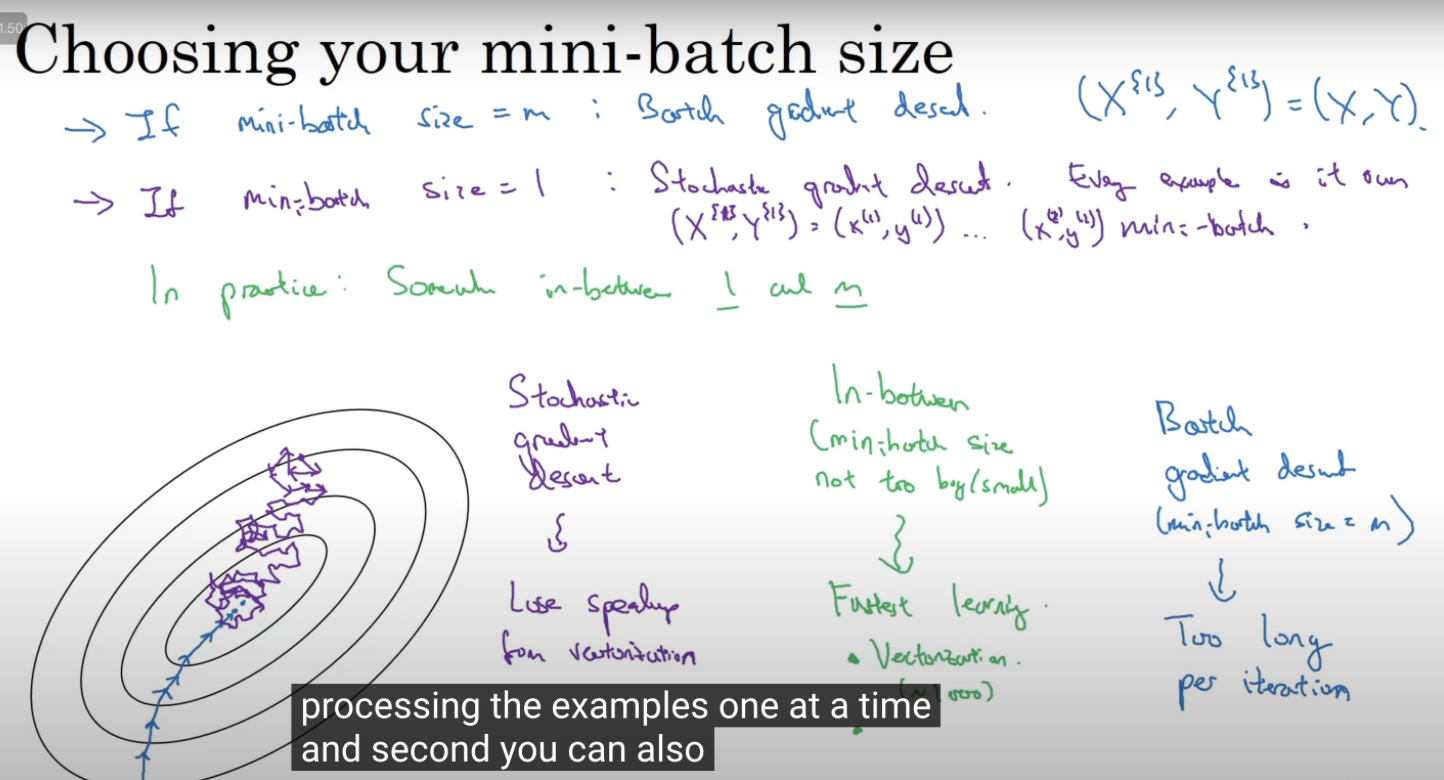 1.50
Choosing your mini-batch size
→ If mini-batch size = m : Batch gradient descent. (X^{1}, Y^{1}) = (X, Y).
→ If mini-batch size = 1 : Stochastic gradient descent. Every example is it own
(X^{1}, Y^{1}) = (x^(1), y^(1)) ... (x^(2), y^(2)) mini-batch.
In practice: Somewhere in-between 1 and m
Stochastic
gradient
descent
Lose speedup
from vectorization
In-between
(mini-batch size
not too big/small)
Fastest learning.
• Vectorization.
Batch
gradient descent
(mini-batch size = m)
Too long
per iteration
processing the examples one at a time
and second you can also